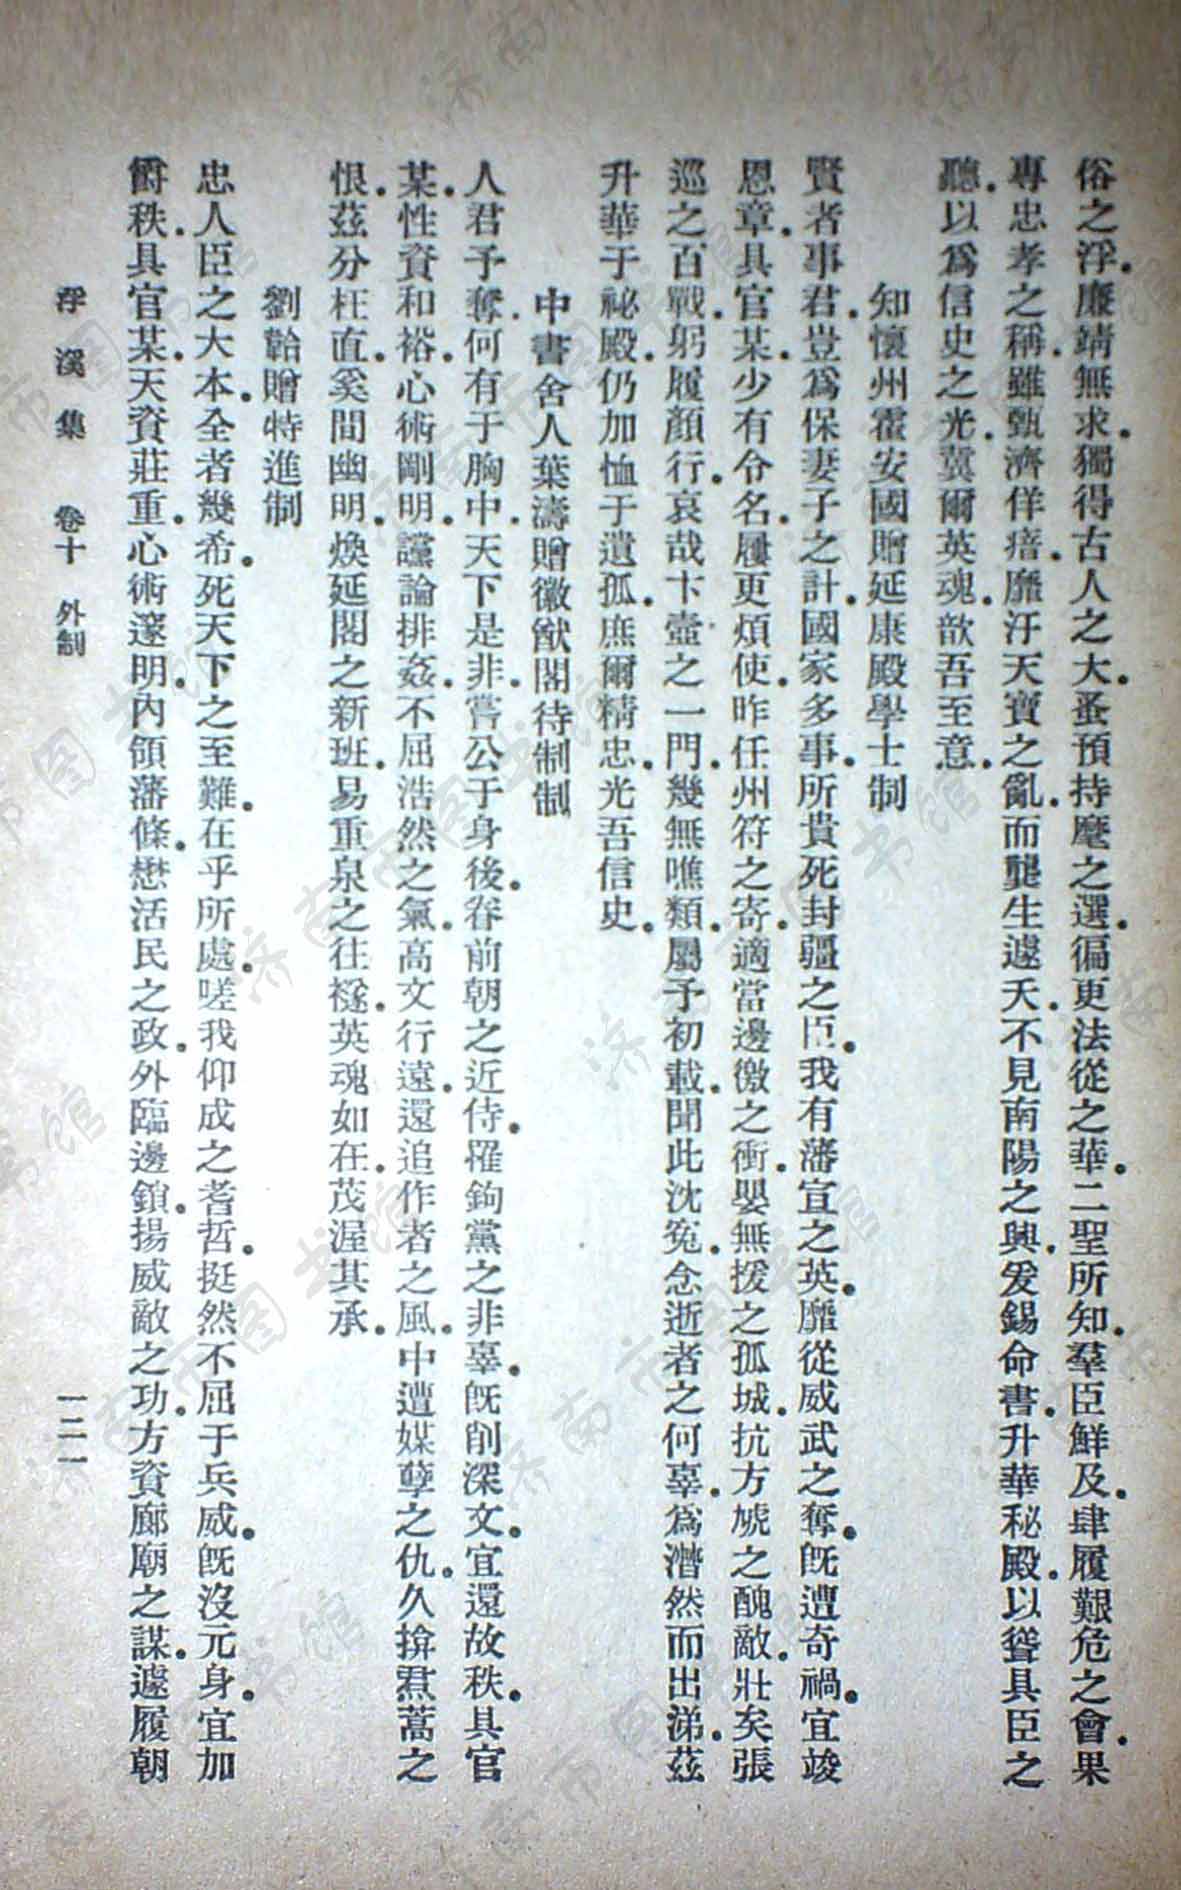 俗之浮。廉靖無求。獨得古人之大。蚤預持麾之選。徧更法從之華。二聖所知。羣臣鮮及。肆履艱危之會。果
專忠孝之稱。雖甄濟佯瘖。靡汙天寶之亂。而龔生遽夭。不見南陽之興。爰錫命書。升華秘殿。以聳具臣之
聽。以爲信史之光。冀爾英魂。歆吾至意。
知懷州霍安國贈延康殿學士制
賢者事君。豈爲保妻子之計。國家多事。所貴死封疆之臣。我有藩宣之英。靡從威武之奪。旣遭奇禍。宜竣
恩章。具官某。少有令名。屢更煩使。昨任州符之寄。適當邊徼之衝。嬰無援之孤城。抗方虓之醜敵。壯矣張
巡之百戰。躬履顏行。哀哉卞壼之一門。幾無噍類。屬予初載。聞此沈冤。念逝者之何辜。爲潸然而出涕。茲
升華于祕殿。仍加恤于遺孤。庶爾精忠。光吾信史。
中書舍人葉濤贈徽猷閣待制制
人君予奪。何有于胸中。天下是非。嘗公于身後。眷前朝之近侍。罹鉤黨之非辜。旣削深文。宜還故秩。具官
某。性資和裕。心術剛明。讜論排姦。不屈浩然之氣。高文行遠。還追作者之風。中遭媒孽之仇。久揜焄蒿之
恨。茲分枉直。奚間幽明。煥延閣之新班。易重泉之往襚。英魂如在。茂渥其承。
劉韐贈特進制
忠人臣之大本。全者幾希。死天下之至難。在乎所處。嗟我仰成之耆哲。挺然不屈于兵威。旣沒元身。宜加
爵秩。具官某。天資莊重。心術邃明。內領藩條。懋活民之政。外臨邊鎖。揚威敵之功。方資廊廟之謀。遽履朝
浮溪集 卷十 外制 一二一
济南市图书馆